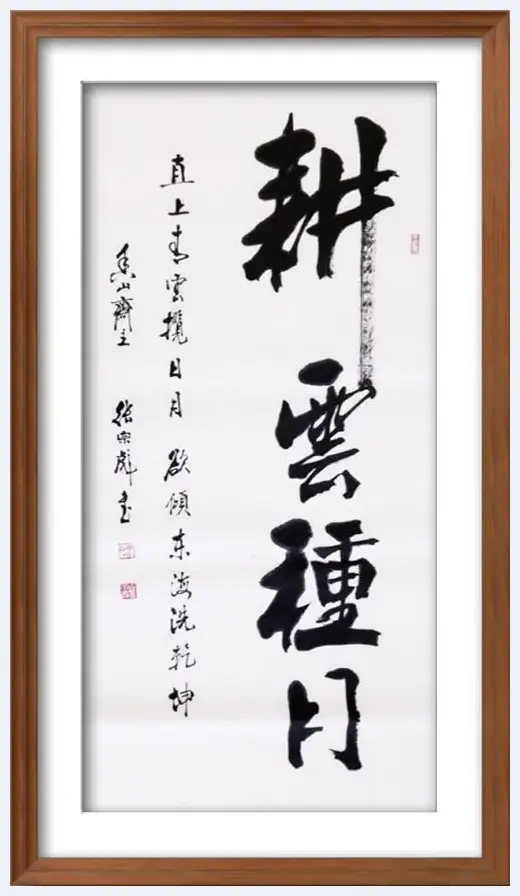 耕雲種月
直上青雲攬日月 欲傾东海洗乾坤
香山齋主 張宗彪书